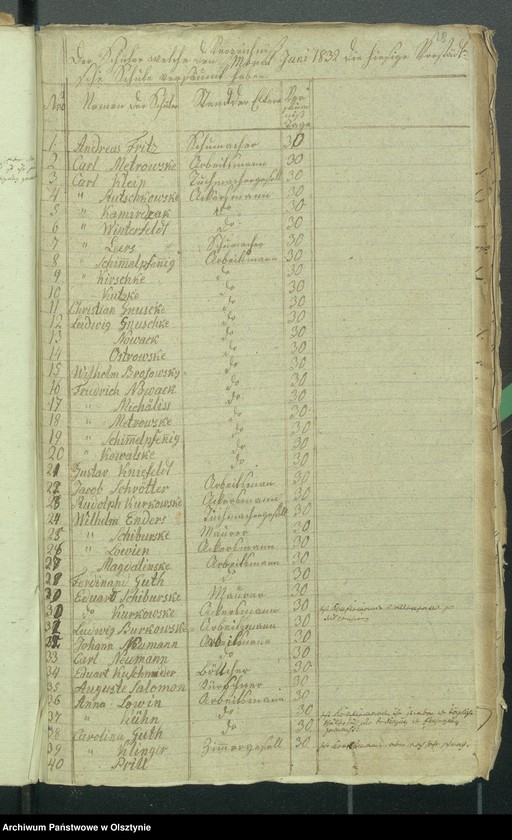 Verzeichniß
Der Schüler welche den Monat Juni 1832 die hiesige Vorstädt-
sche Schule versäumt haben
Nro Namen der Schüler Stand der Eltern Versäumniß Tage
1 Andreas Fritz Schumacher 30
2 Carl Metrowske Arbeitsmann 30
3 Carl Klein Tuchmachergesell 30
4 " Rutschkowske Ackersmann 30
5 " Kamirczak do 30
6 " Winterfeldt do 30
7 " Leers Schumacher 30
8 " Schimelpfenig Arbeitsmann 30
9 " Kirschke do 30
10 " Kutzke do 30
11 Christian Gnuscke do 30
12 Ludwig Gnuschke do 30
13 Nowack do 30
14 Ostrowske do 30
15 Wilhelm Brosowsky do 30
16 Friedrich Nowack do 30
17 " Michaliss do 30
18 " Metrowske do 30
19 " Schimelpfenig do 30
20 " Kowalske do 30
21 Gustav Kniefeldt do 30
22 Jacob Schrötter Arbeitsman 30
23 Rudolph Kurkowske Ackersmann 30
24 Wilhelm Enders Tuchmachergesell 30
25 " Schiburske Maurer 30
26 " Lowien Ackersmann 30
27 " Magdalinske Arbeitsmann 30
28 Ferdinant Guth do 30
30 Eduart Schiburske Maurer 30
30 do Kurkowske Ackersmann 30
31 Ludwig Burkowske Arbeitsmann 30
32 Johann Neumann Arbeitsmann 30
33 Carl Neumann do 30
34 Eduart Kirschnider Böttcher 30
35 Auguste Salomon Kürschner 30
36 Anna Lowin Arbeitsmann 30
37 " Kühn do 30
38 Carolina Guth do 30
39 " Klinger Zimergesell 30
40 " Prill
Archiwum Państwowe w Olsztynie